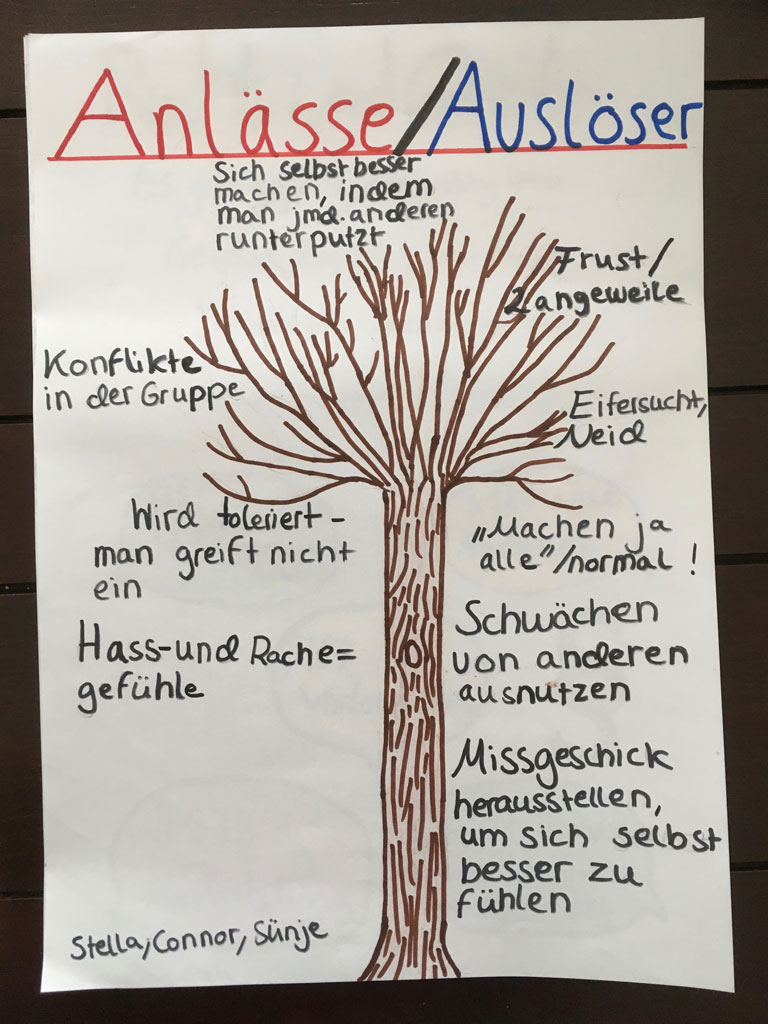 Anlässe/Auslöser
Sich selbst besser
machen, indem
man jmd. anderen
runterputzt
Frust/
Langeweile
Konflikte
in der Gruppe
Eifersucht,
Neid
Wird toleriert -
man greift nicht
ein
„Machen ja
alle"/normal !
Hass- und Rache=
gefühle
Schwächen
von anderen
ausnutzen
Missgeschick
herausstellen,
um sich selbst
besser zu
fühlen
Stella, Connor, Sünje